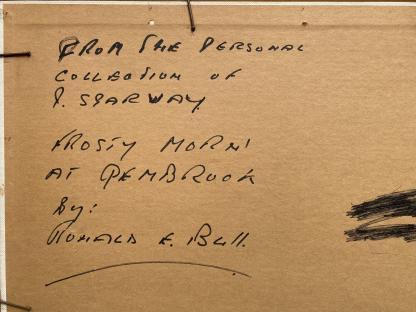 FROM THE PERSONAL
COLLECTION OF
P. STARWAY
FROSTY MORN'
AT PEMBROOK
By:
RONALD E. BULL.